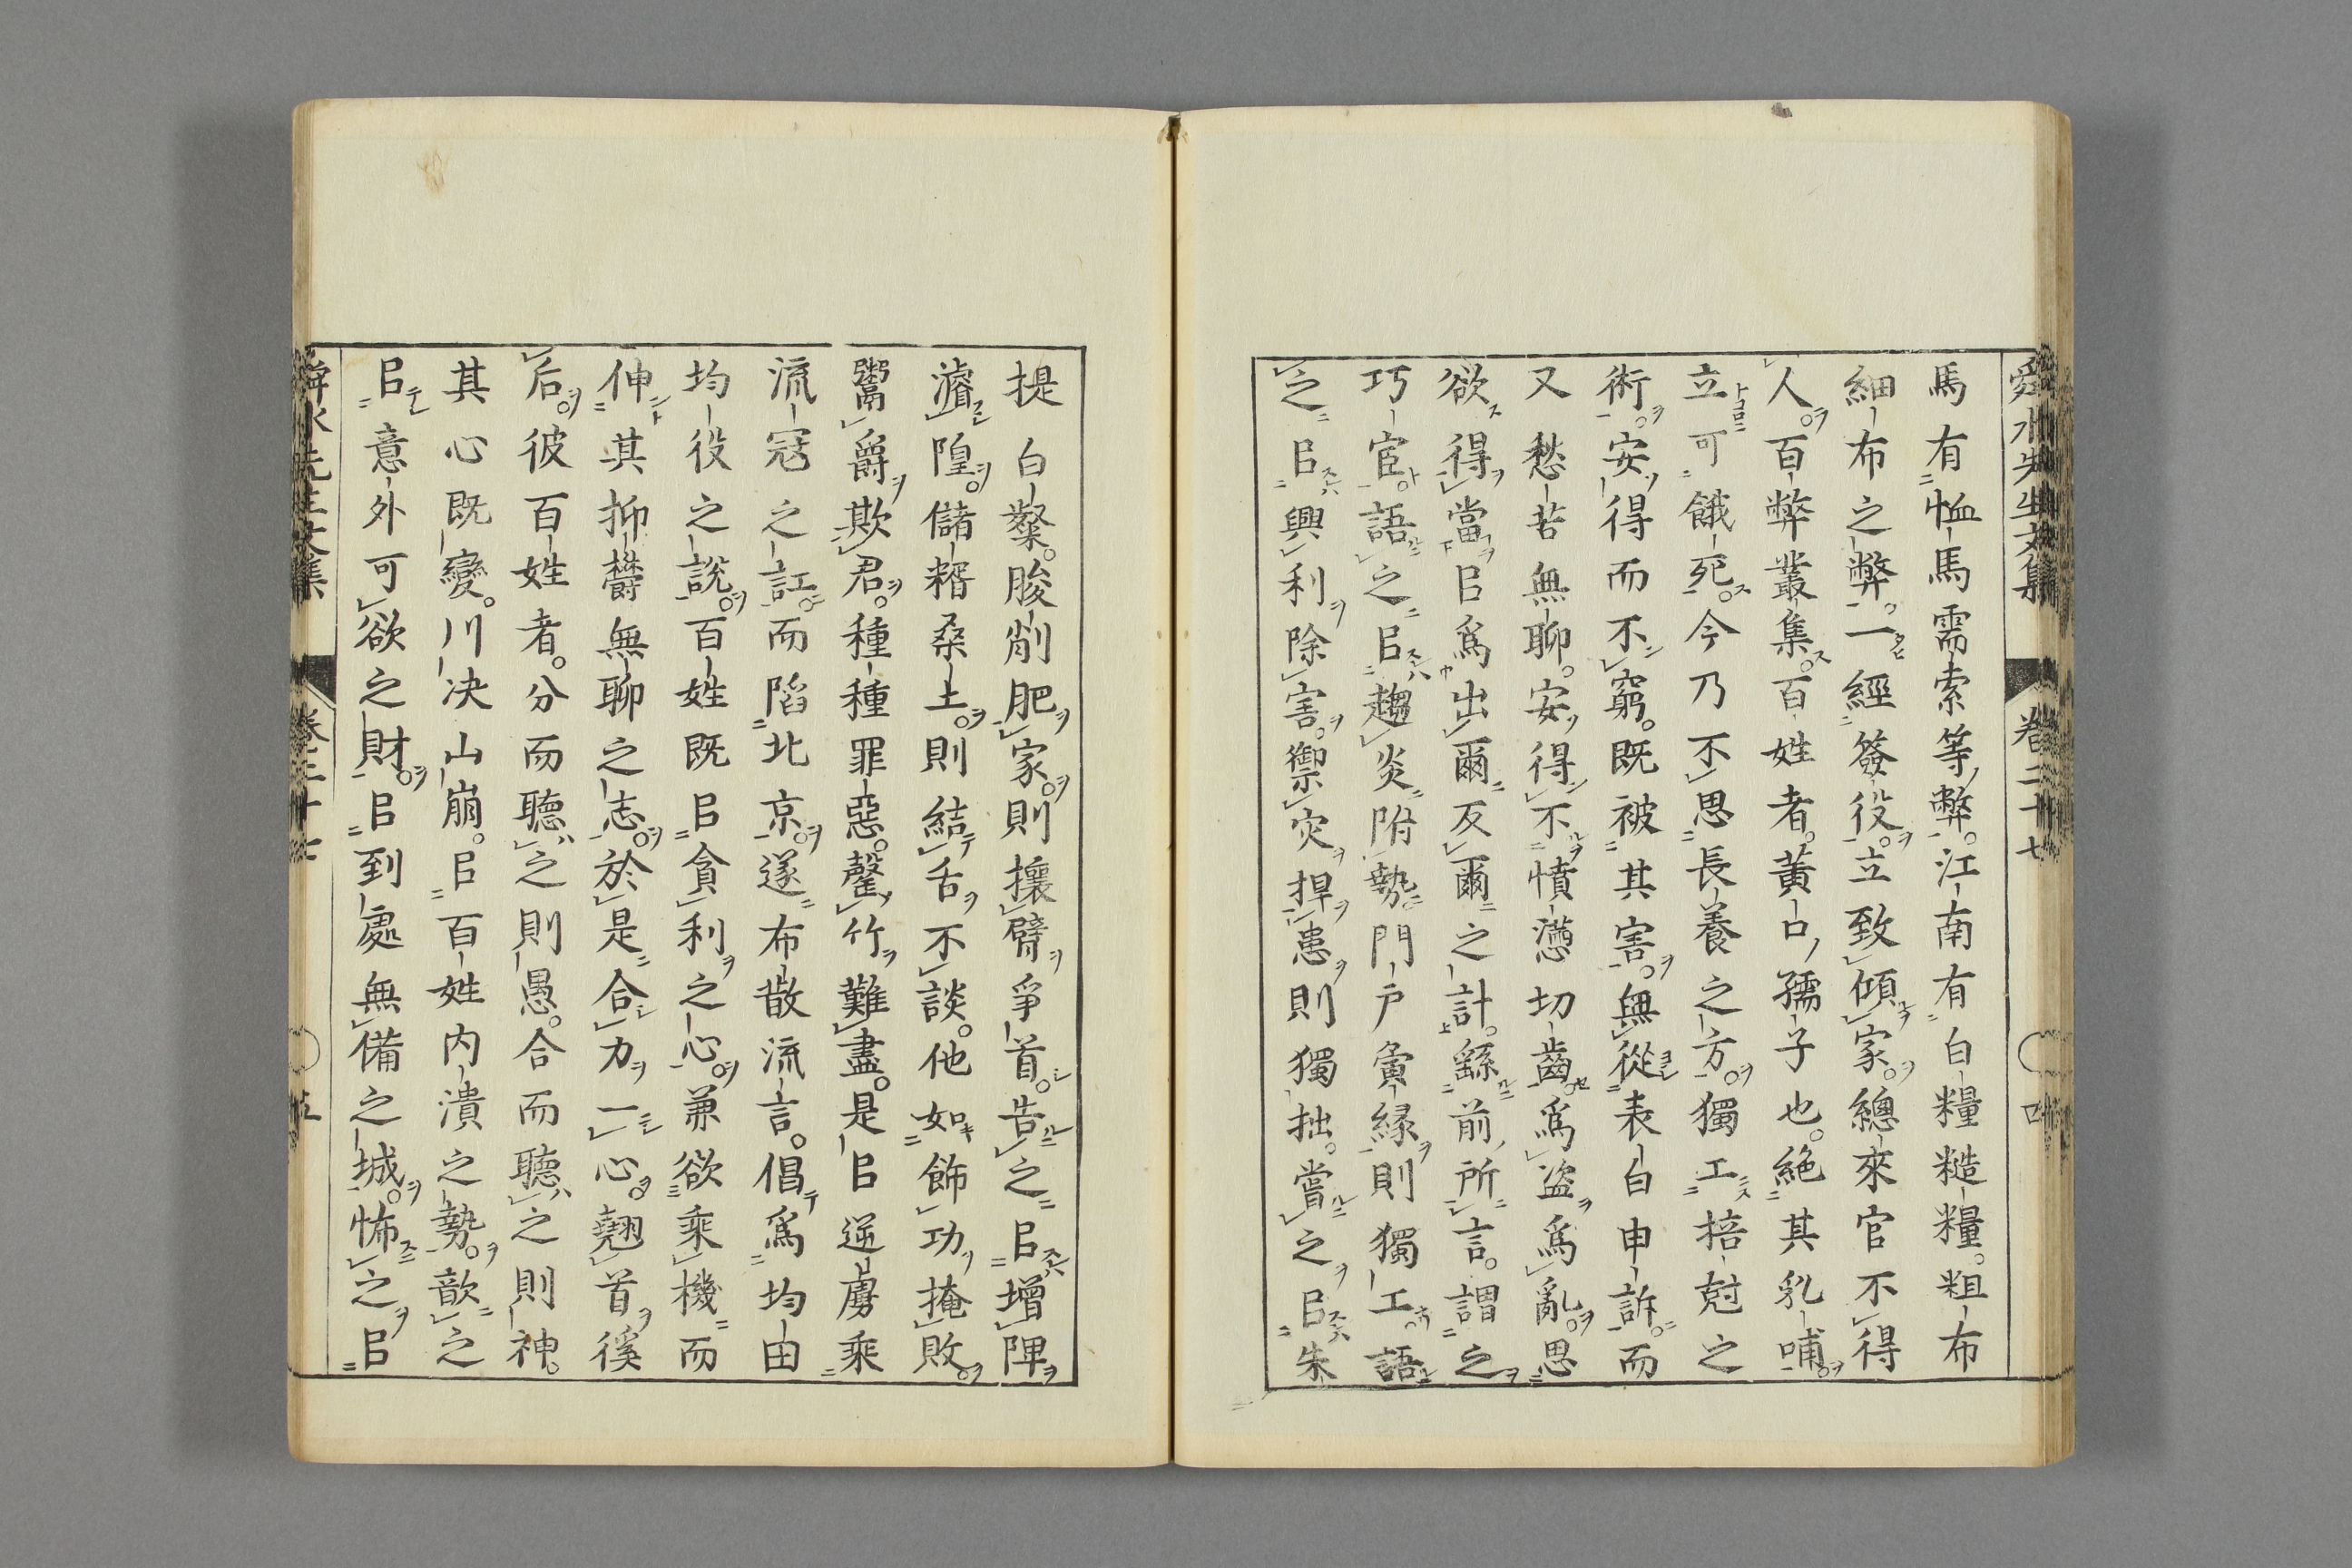 舜水先生文集 卷二十七 四
馬有恤馬需索等弊。江南有白糧糙糧。粗布
細布之弊。一經簽役。立致傾家。總來官不得
人。百弊叢集。百姓者。黃口孺子也。絶其乳哺。
立可餓死。今乃不思長養之方。獨工掊尅之
術。安得而不窮。既被其害。無從表白申訴。而
又愁苦無聊。安得不憤懣切齒。爲盗爲亂。思
欲得當㠯爲出爾反爾之計。繇前所言。謂之
巧宦。語之㠯趨炎附勢門戸夤縁則獨工。語
之㠯興利除害。禦灾捍患則獨拙。嘗之㠯朱
提白粲。朘削肥家。則攘臂爭首。告之㠯增陴
濬隍。儲糈桑土。則結舌不談。他如飾功掩敗。
鬻爵欺君。種種罪惡。罄竹難盡。是㠯逆虜乘
流寇之訌。而陷北京。遂布散流言。倡爲均由
均役之說。百姓既㠯貪利之心。兼欲乘機而
伸其抑欝無聊之志。於是合力一心。翹首徯
后。彼百姓者。分而聽之則愚。合而聽之則神。
其心既變。川决山崩。㠯百姓内潰之勢。歆之
㠯意外可欲之財。㠯到處無備之城。怖之㠯
舜水先生文集 卷二十七 五